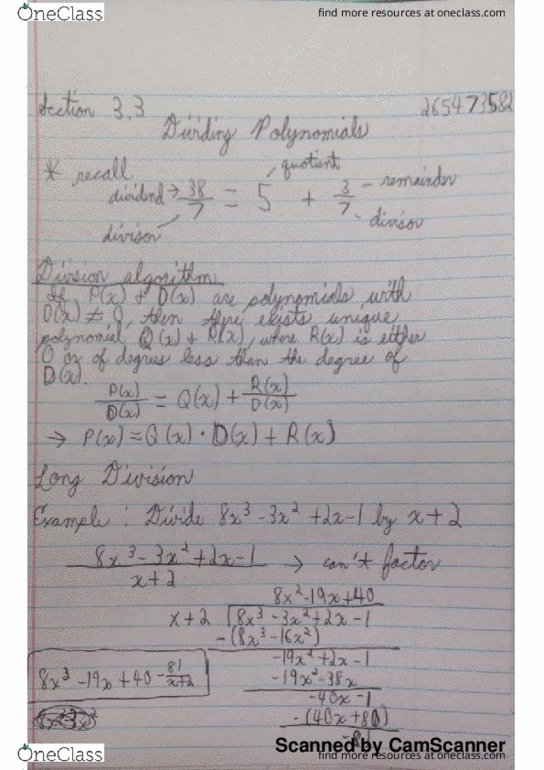 OneClass
find more resources at oneclass.com
Section 3.3
265473582
Dividing Polynomials
* recall
dividend → 38/7 = 5 + 3/7
quotient
remainder
divisor
divisor
Division algorithm
If P(x) + D(x) are polynomials with
D(x) ≠ 0, then there exists unique
polynomial Q(x) + R(x), where R(x) is either
0 or of degrees less than the degree of
D(x).
P(x)/D(x) = Q(x) + R(x)/D(x)
→ P(x) = Q(x) · D(x) + R(x)
Long Division
Example: Divide 8x³ -3x² +2x-1 by x+2
8x³-3x²+2x-1 / x+2 → can't factor
8x²-19x+40
x+2 8x³-3x²+2x-1
-(8x³-16x²)
-19x²+2x-1
-19x²-38x
-40x-1
-(40x+80)
-81
8x³ -19x+40 - 81/x+2
Scanned by CamScanner
OneClass
find more resources at oneclass.com